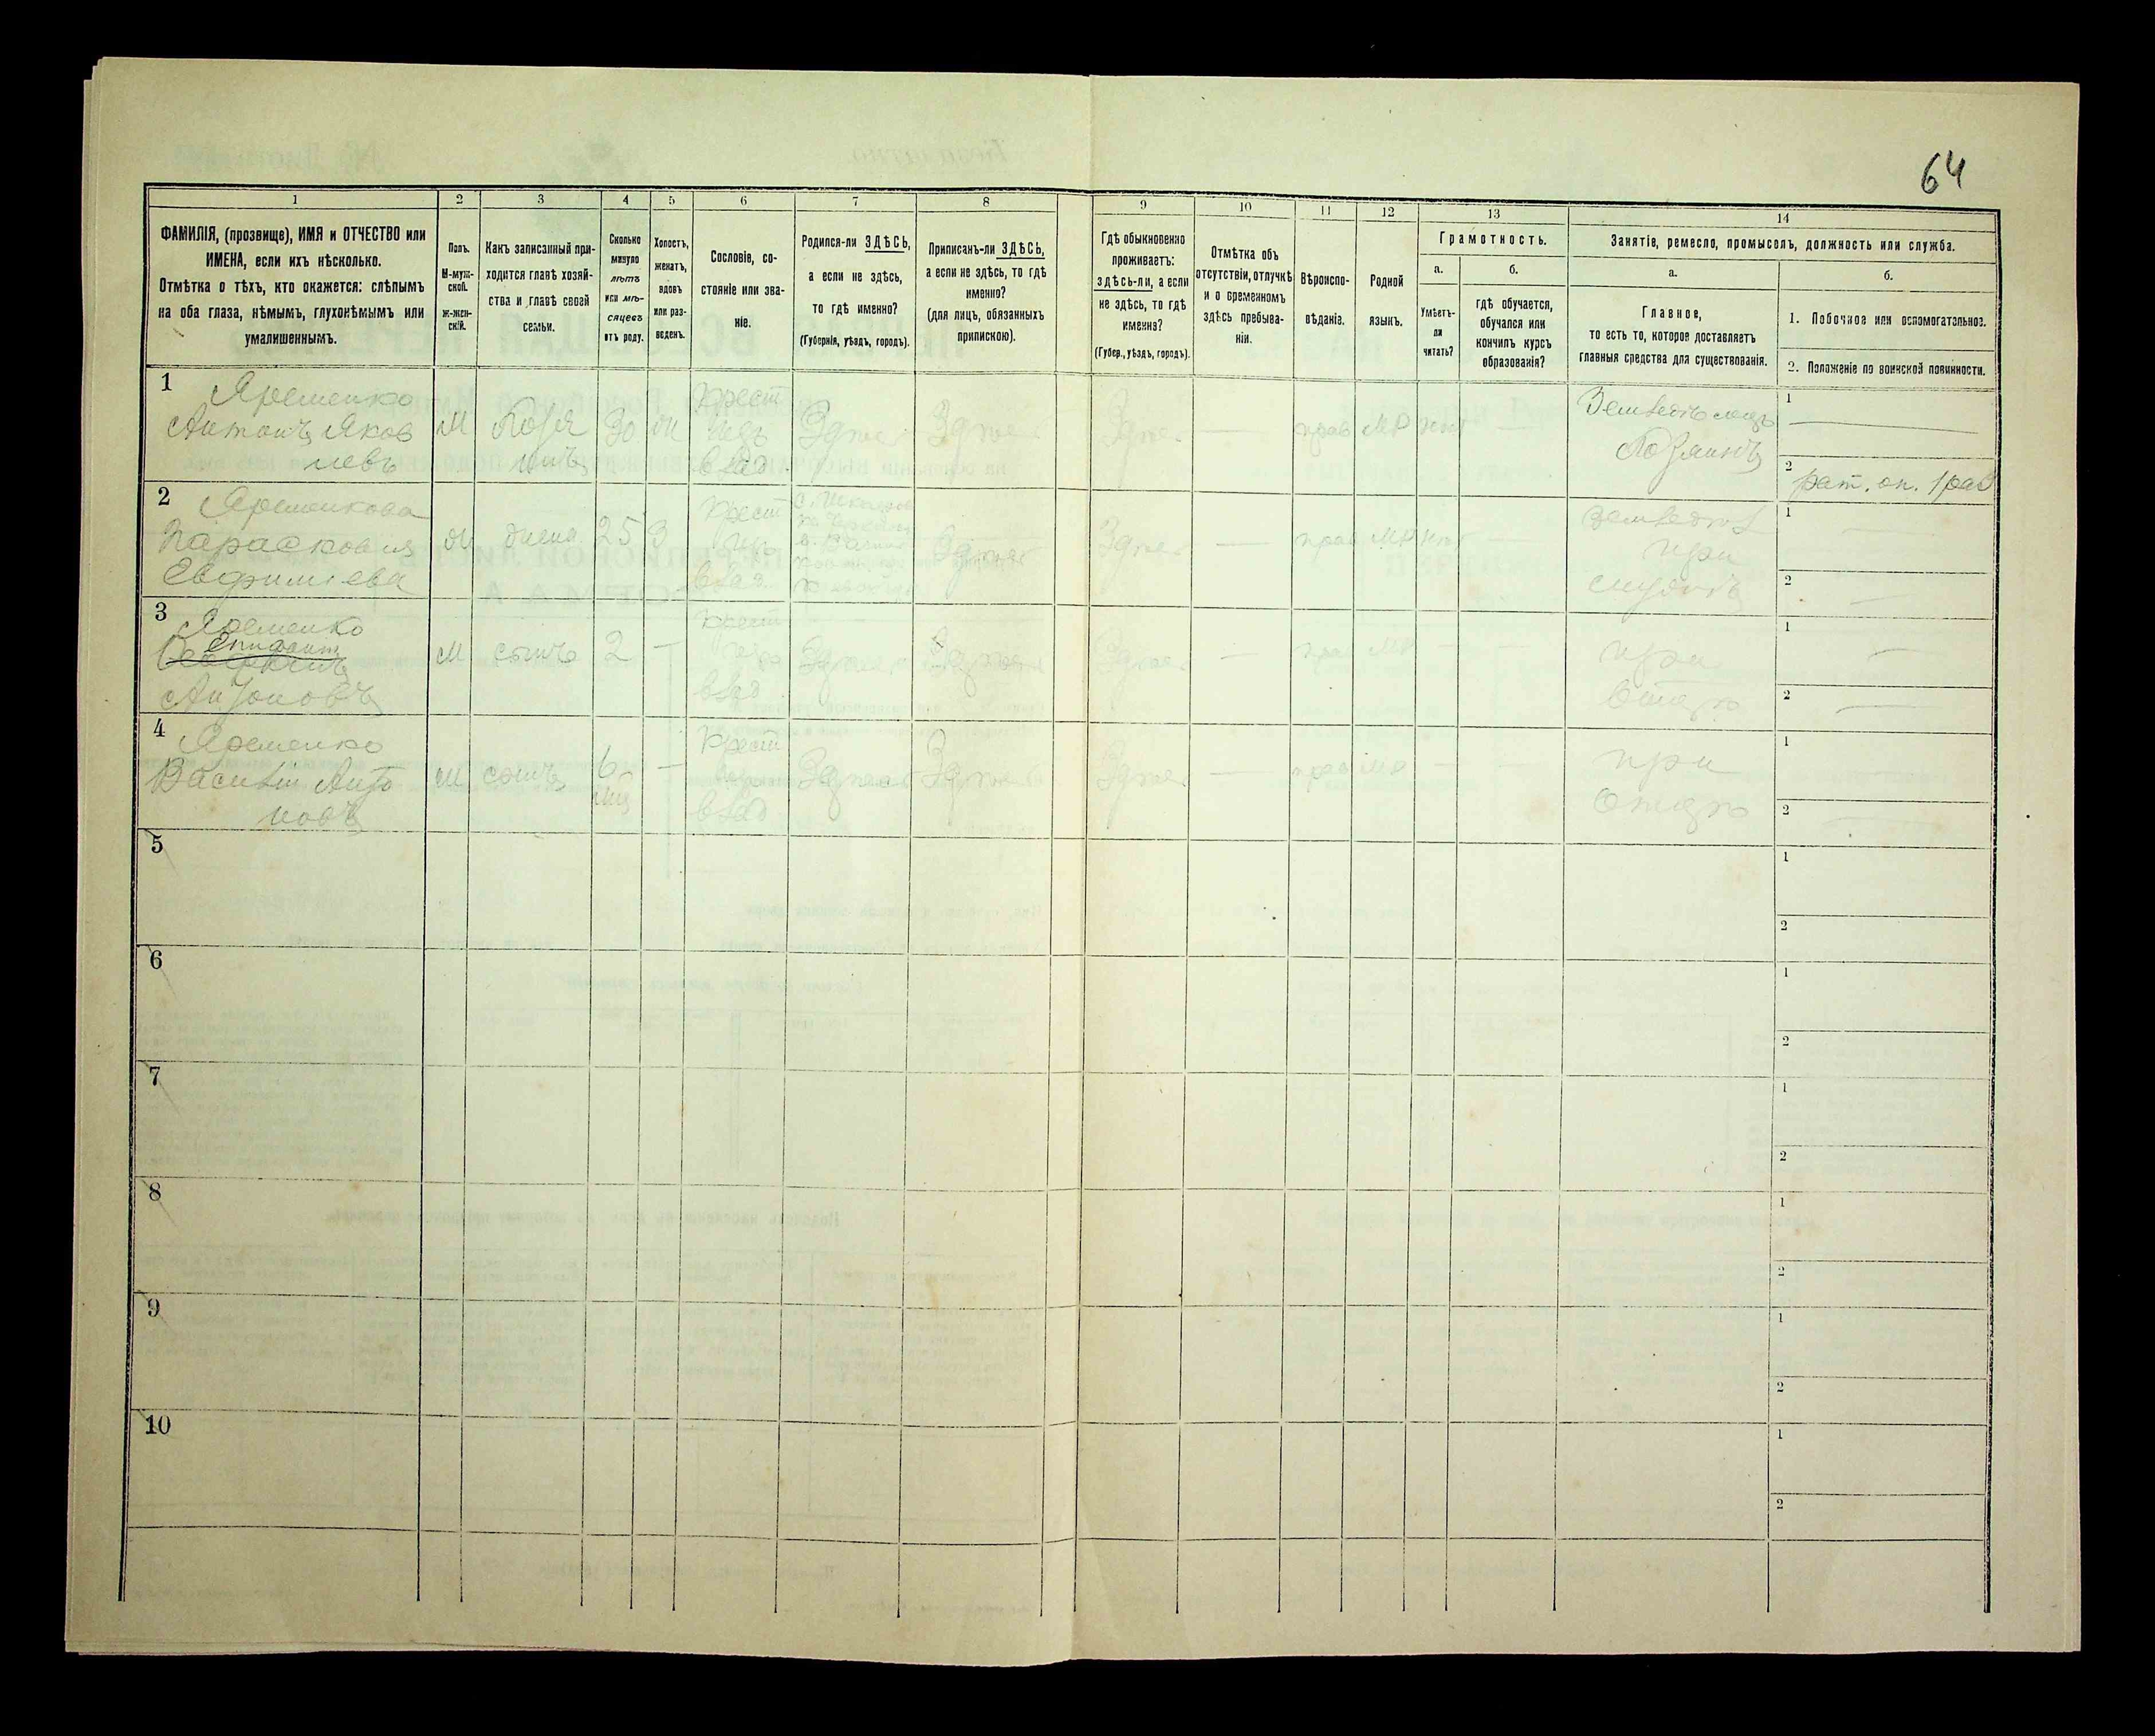 64
1
2
3
4
5
6
7
8
9
10
11
12
13
14
ФАМИЛІЯ, (прозвище), ИМЯ и ОТЧЕСТВО или
ИМЕНА, если ихъ нѣсколько.
Отмѣтка о тѣхъ, кто окажется: слѣпымъ
на оба глаза, нѣмымъ, глухонѣмымъ или
умалишеннымъ.
Полъ.
М-муж-
ской.
ж-жен-
скій.
Какъ записанный при-
ходится главѣ хозяй-
ства и главѣ своей
семьи.
Сколько
минуло
лѣтъ
или мѣ-
сяцевъ
отъ роду.
Холостъ,
женатъ,
вдовъ
или раз-
веденъ.
Сословіе, со-
стояніе или зва-
ніе.
Родился-ли ЗДѢСЬ,
а если не здѣсь,
то гдѣ именно?
(Губернія, уѣздъ, городъ).
Приписанъ-ли ЗДѢСЬ,
а если не здѣсь, то гдѣ
именно?
(для лицъ, обязанныхъ
припискою).
Гдѣ обыкновенно
проживаетъ:
здѣсь-ли, а если
не здѣсь, то гдѣ
именно?
(Губер., уѣздъ, городъ).
Отмѣтка объ
отсутствіи, отлучкѣ
и о временномъ
здѣсь пребыва-
ніи.
Вѣроиспо-
вѣданіе.
Родной
языкъ.
Грамотность.
а.
б.
Умѣетъ-
ли
читать?
гдѣ обучается,
обучался или
кончилъ курсъ
образованія?
Занятіе, ремесло, промыселъ, должность или служба.
а.
б.
Главное,
то есть то, которое доставляетъ
главныя средства для существованія.
1. Побочное или вспомогательное.
2. Положеніе по воинской повинности.
1
Яременко
Антонъ Яков
левъ
М
Хозя
инъ
30
Крест
влад
Здѣсь
Здѣсь
Здѣсь
прав
МР
Хозяинъ
1
2
рат. оп. 1 раз
2
Яременкова
Парасковия
Евфимиева
жена
25
Крест
влад
Здѣсь
Здѣсь
прав
МР
при
1
2
3
Яременко
Антоновъ
М
сынъ
2
крест
влад
Здѣсь
Здѣсь
Здѣсь
прав
МР
при
1
2
4
Яременко
Василій Анто
новъ
М
сынъ
6
мц
Крест
влад
Здѣсь
Здѣсь
Здѣсь
прав
МР
при
отцѣ
1
2
5
1
2
6
1
2
7
1
2
8
1
2
9
1
2
10
1
2